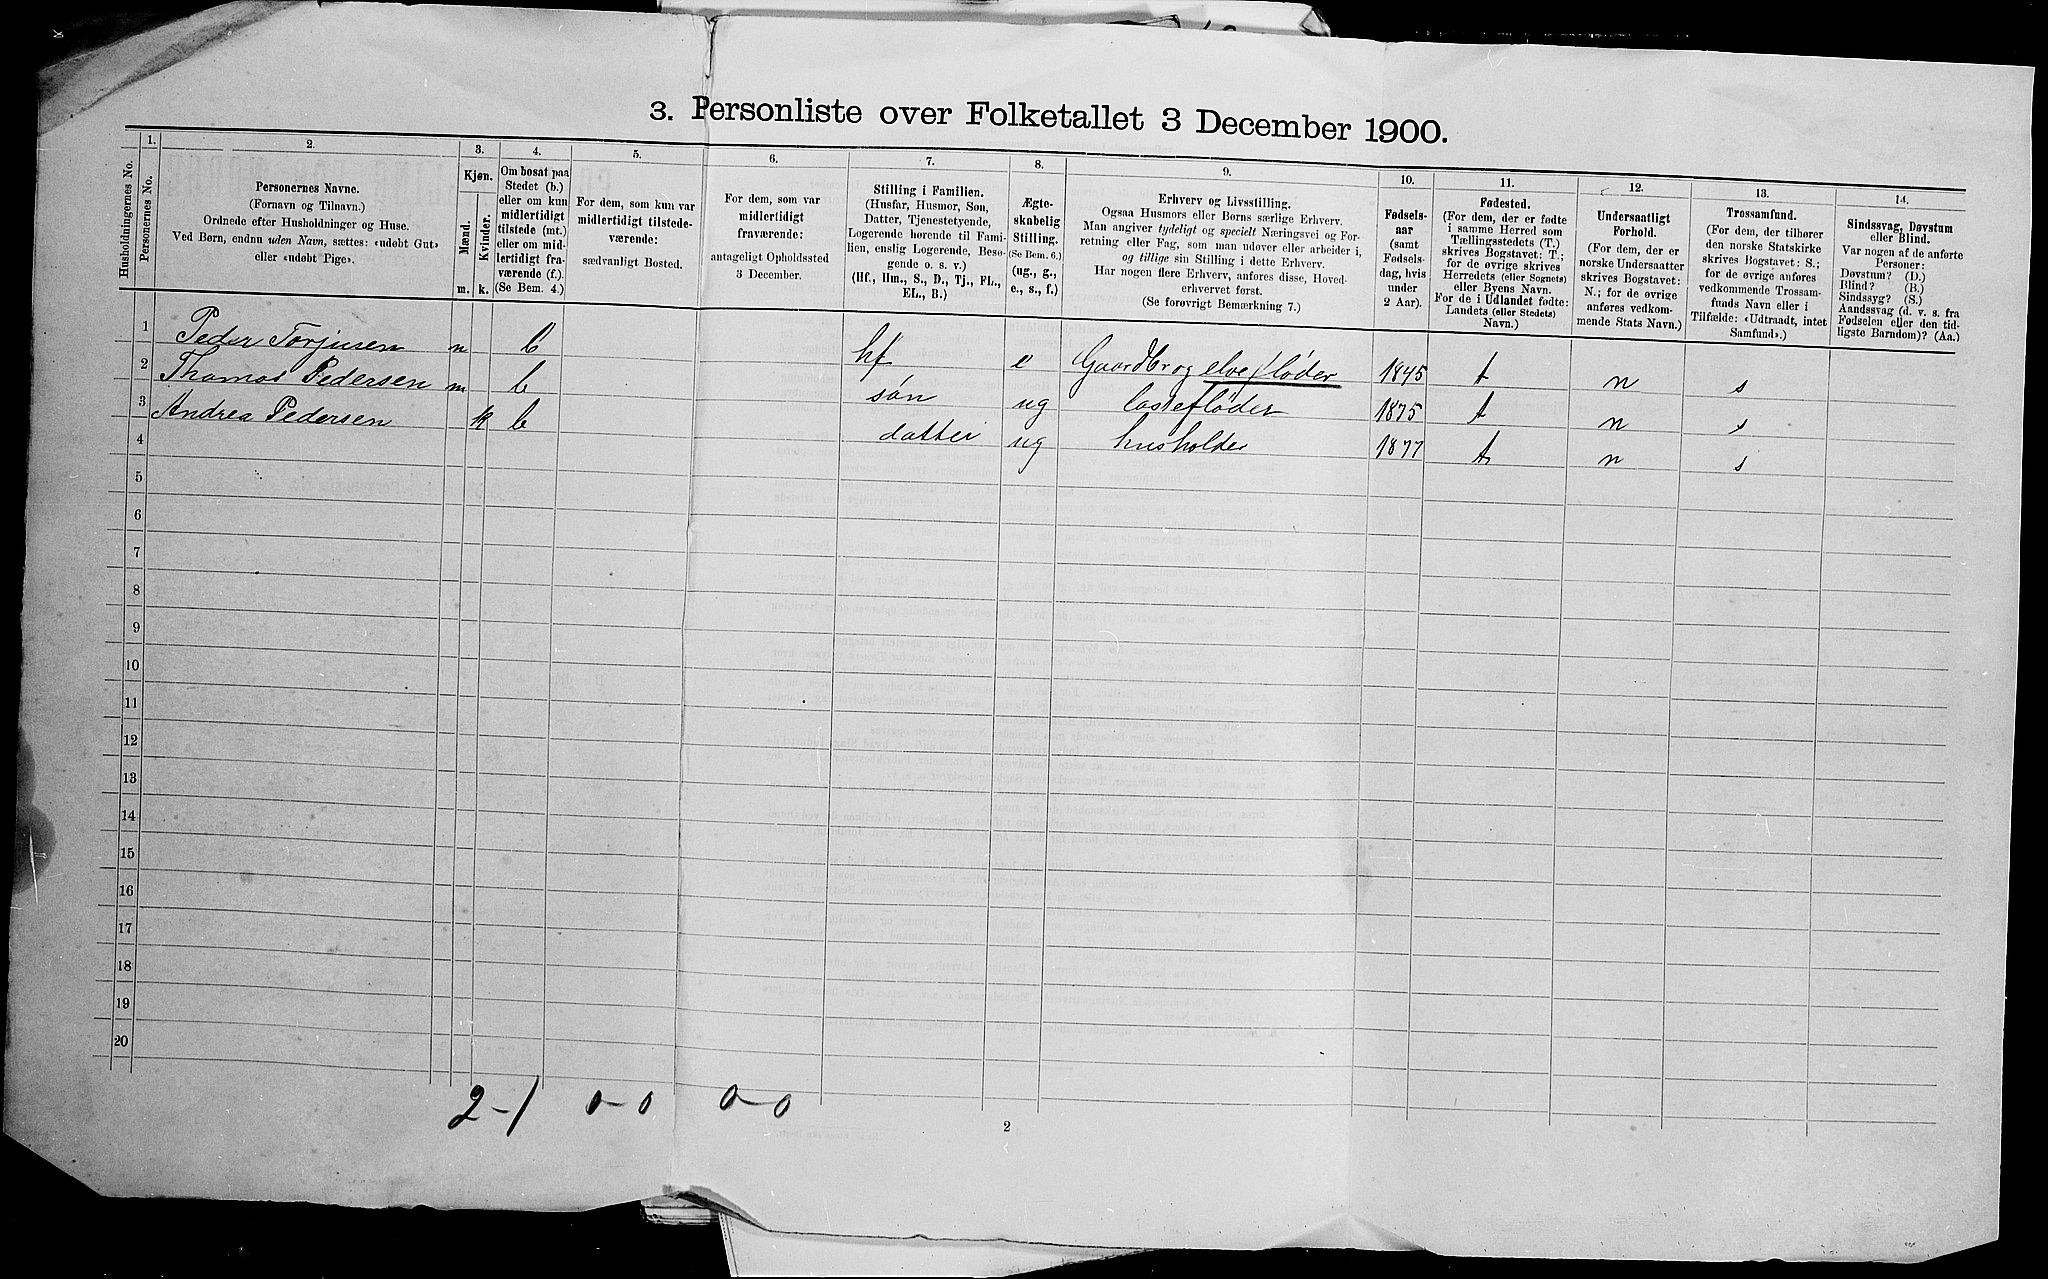 3. Personliste over Folketallet 3 December 1900.
Husholdningernes No.
1.
Personernes No.
2.
Personernes Navne.
(Fornavn og Tilnavn.)
Ordnede efter Husholdninger og Huse.
Ved Børn, endnu uden Navn, sættes: «udøbt Gut»
eller «udøbt Pige».
3.
Kjøn.
Mænd.
Kvinder.
m.
k.
4.
Om bosat paa
Stedet (b.)
eller om kun
midlertidigt
tilstede (mt.)
eller om mid-
lertidigt fra-
værende (f.).
(Se Bem. 4.)
5.
For dem, som kun var
midlertidigt tilstede-
værende:
sædvanligt Bosted.
6.
For dem, som var
midlertidigt
fraværende:
antageligt Opholdssted
3 December.
7.
Stilling i Familien.
(Husfar, Husmor, Søn,
Datter, Tjenestetyende,
Logerende hørende til Fami-
lien, enslig Logerende, Besø-
gende o. s. v.)
(Hf., Hm., S., D., Tj., FL.,
EL., B.)
8.
Ægte-
skabelig
Stilling.
(Se Bem. 6.)
(ug., g.,
e., s., f.)
9.
Erhverv og Livsstilling.
Ogsaa Husmors eller Børns særlige Erhverv.
Man angiver tydeligt og specielt Næringsvei og For-
retning eller Fag, som man udover eller arbeider i,
og tillige sin Stilling i dette Erhverv.
Har nogen flere Erhverv, anføres disse, Hoved-
erhvervet først.
(Se forøvrigt Bemærkning 7.)
10.
Fødsels-
aar
(samt
Fødsels-
dag, hvis
under
2 Aar).
11.
Fødested.
(For dem, der er fødte
i samme Herred som
Tællingsstedets (T.)
skrives Bogstavet: T.;
for de øvrige skrives
Herredets (eller Sognets)
eller Byens Navn.
For de i Udlandet fødte:
Landets (eller Stedets)
Navn.)
12.
Undersaatligt
Forhold.
(For dem, der er
norske Undersaatter
skrives Bogstavet:
N.; for de øvrige
anføres vedkom-
mende Stats Navn.)
13.
Trossamfund.
(For dem, der tilhører
den norske Statskirke
skrives Bogstavet: S.;
for de øvrige anføres
vedkommende Trossam-
funds Navn eller i
Tilfælde: «Udtraadt, intet
Samfund».)
14.
Sindssvag, Døvstum
eller Blind.
Var nogen af de anførte
Personer:
Døvstum? (D.)
Blind? (B.)
Sindssyg? (S.)
Aandssvag (d. v. s. fra
Fødselen eller den tid-
ligste Barndom)? (Aa.)
1 Peder Torjusen m b hf e Gaardbr og elvefløder 1845 t n s
2 Thomas Pedersen m b søn ug lossefløder 1875 t n s
3 Andrea Pedersen k b datter ug husholder 1877 t n s
4
5
6
7
8
9
10
11
12
13
14
15
16
17
18
19
20
2-1 0-0 0-0
2